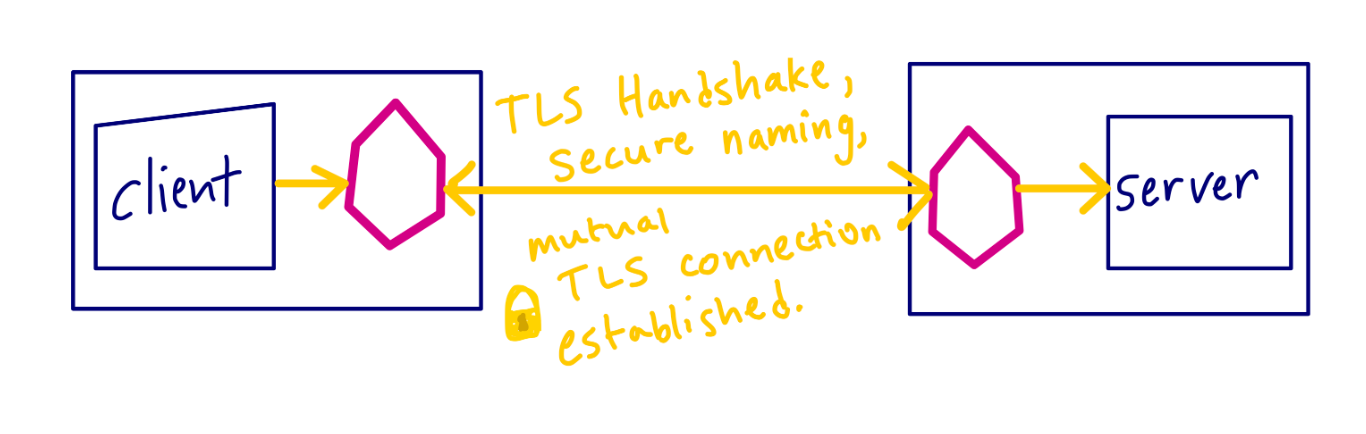 client
TLS Handshake,
Secure naming,
mutual
TLS connection
established.
server